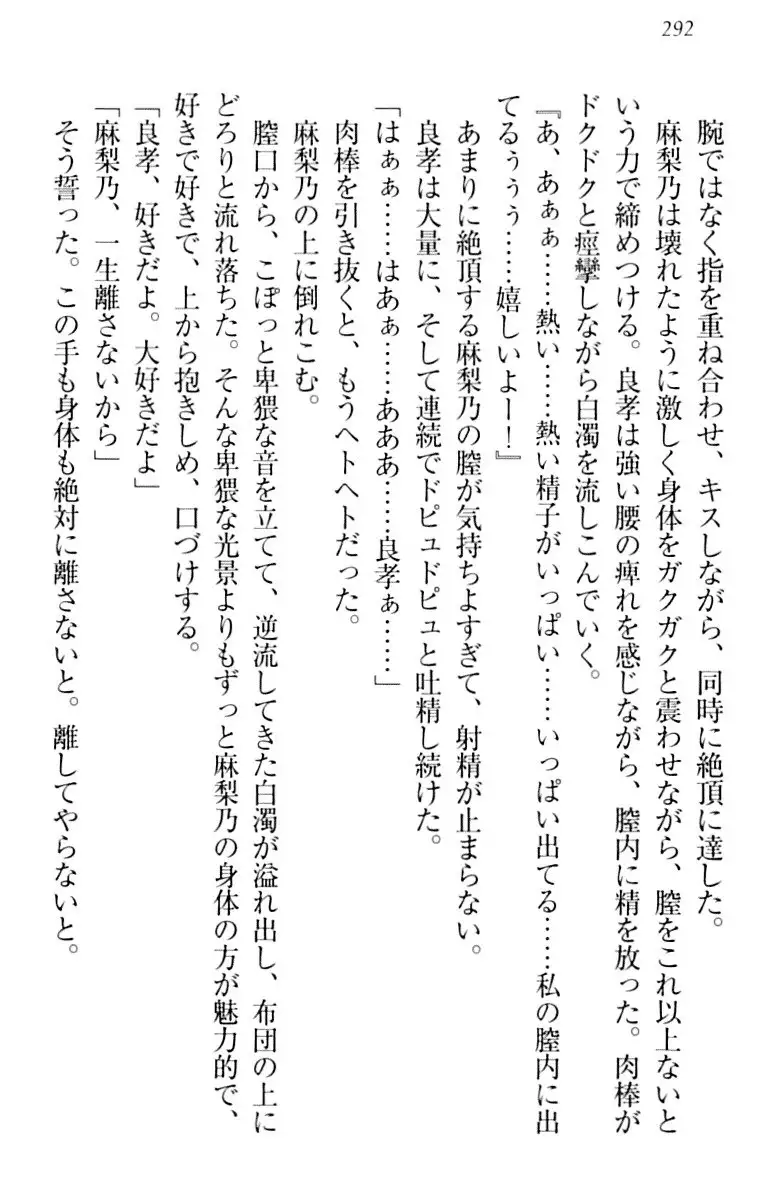 292
腕ではなく指を重ね合わせ、キスしながら、同時に絶頂に達した。
麻梨乃は壊れたように激しく身体をガクガクと震わせながら、膣をこれ以上ないと
いう力で締めつける。良孝は強い腰の痺れを感じながら、膣内に精を放った。肉棒が
ドクドクと痙攣しながら白濁を流しこんでいく。
『あ、あぁぁ……熱い……熱い精子がいっぱい……いっぱい出てる……私の膣内に出
てるぅぅぅ……嬉しいよー！』
あまりに絶頂する麻梨乃の膣が気持ちよすぎて、射精が止まらない。
良孝は大量に、そして連続でドピュドピュと吐精し続けた。
「はぁぁ……はあぁ……あああ……良孝ぁ……」
肉棒を引き抜くと、もうヘトヘトだった。
麻梨乃の上に倒れこむ。
膣口から、こぽっと卑猥な音を立てて、逆流してきた白濁が溢れ出し、布団の上に
どろりと流れ落ちた。そんな卑猥な光景よりもずっと麻梨乃の身体の方が魅力的で、
好きで好きで、上から抱きしめ、口づけする。
「良孝、好きだよ。大好きだよ」
「麻梨乃、一生離さないから」
そう誓った。この手も身体も絶対に離さないと。離してやらないと。